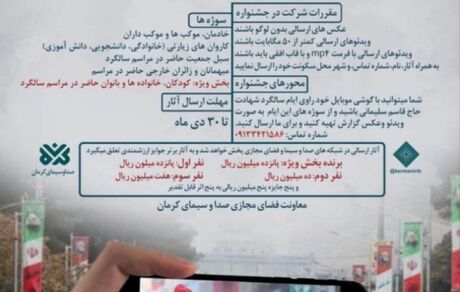 مقررات شرکت در جشنواره
عکس های ارسالی بدون لوگو باشند
ویدئوهای ارسالی کمتر از ۵۰ مگابایت باشند
ویدئوهای ارسالی با فرمت mp۴ و با قاب افقی باید باشند
به همراه آثار، نام، شماره تماس، و شهر محل سکونت خود را ارسال نمایید
محورهای جشنواره
شما میتوانید با گوشی موبایل خود راوی ایام سالگرد شهادت
حاج قاسم سلیمانی باشید و از سوژه های این ایام به صورت
ویدئو وعکس گزارش تهیه کنید و برای ما ارسال کنید.
شماره تماس: ۰۹۱۳۳۴۲۱۵۸۶
سوژه ها
خادمان، موکب ها و موکب داران
کاروان های زیارتی (خانوادگی، دانشجویی، دانش آموزی)
سیل جمعیت حاضر در مراسم سالگرد
میهمانان و زائران خارجی حاضر در مراسم
بخش ویژه: کودکان، خانواده ها و بانوان حاضر در مراسم سالگرد
مهلت ارسال آثار
تا ۳۰ دی ماه
آثار ارسالی در شبکه های صدا و سیما و فضای مجازی پخش خواهد شد و به آثار برتر جوایز ارزشمندی تعلق میگیرد
برنده بخش ویژه: پانزده میلیون ریال
نفر اول: پانزده میلیون ریال
نفر دوم: ده میلیون ریال
نفر سوم: هفت میلیون ریال
و پنج جایزه پنج میلیون ریالی به پنج اثر قابل تقدیر
@kermanirib
صدا و سیمای کرمان
معاونت فضای مجازی صدا و سیمای کرمان